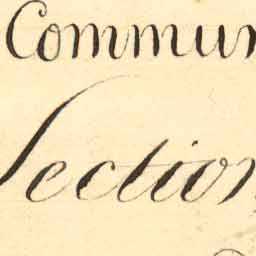 Commun
Section